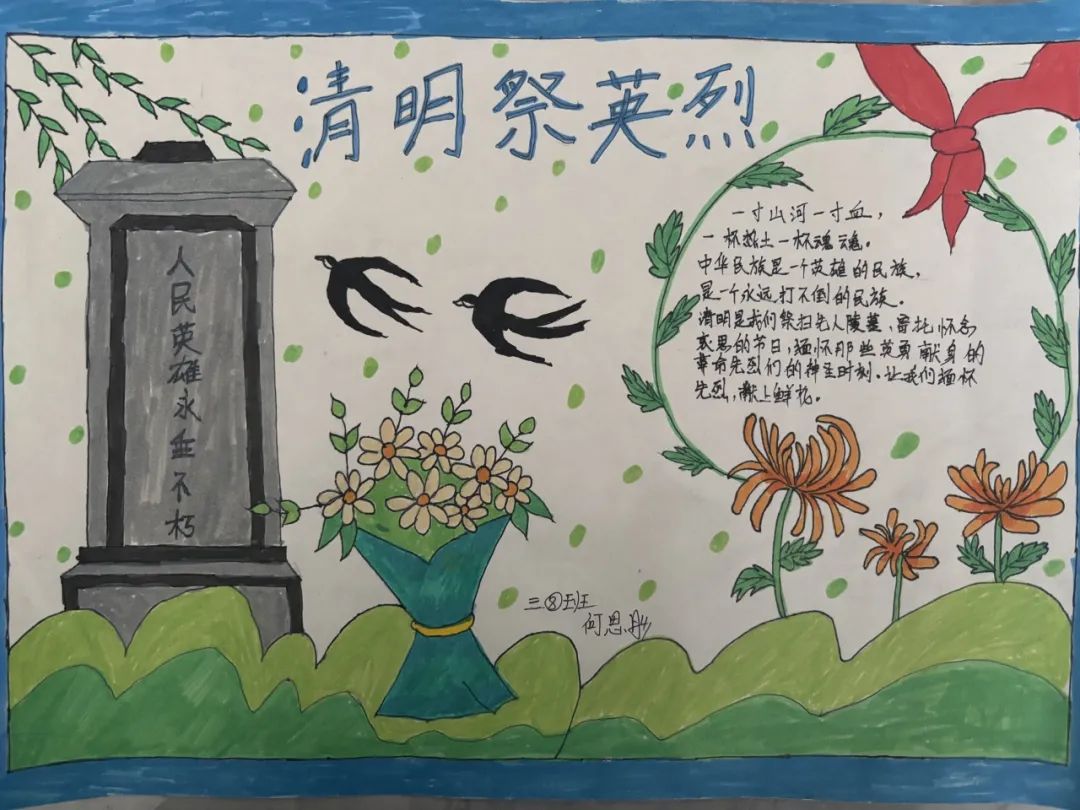 清明祭英烈
人民英雄永垂不朽
一寸山河一寸血，
一杯热土一杯魂魂。
中华民族是一个英雄的民族，
是一个永远打不倒的民族。
清明是我们祭扫先人陵墓、寄托怀念
哀思的节日，缅怀那些英勇献身的
革命先烈们的神圣时刻。让我们缅怀
先烈，献上鲜花。
三⑧班
何思